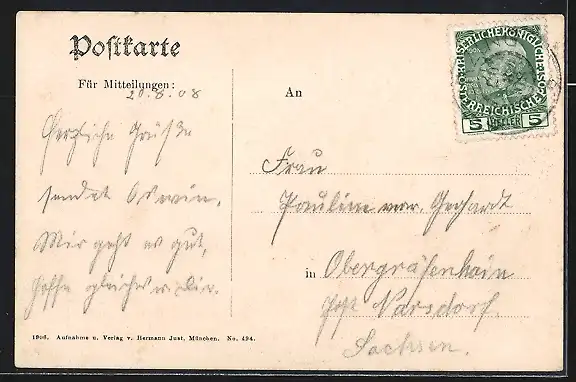 Postkarte
Für Mitteilungen:
20.8.08
Herzliche Grüße
sendet Oskwin.
Mir geht es gut,
hoffe gleiches v. Dir.
An
Frau
Pauline verw. Gerhardt
in Obergräfenhain
Post Narsdorf.
Sachsen.
KAISERLICHE KÖNIGLICHE
ÖSTERREICHISCHE POST
5 HELLER 5
1906. Aufnahme u. Verlag v. Hermann Just, München. No. 494.